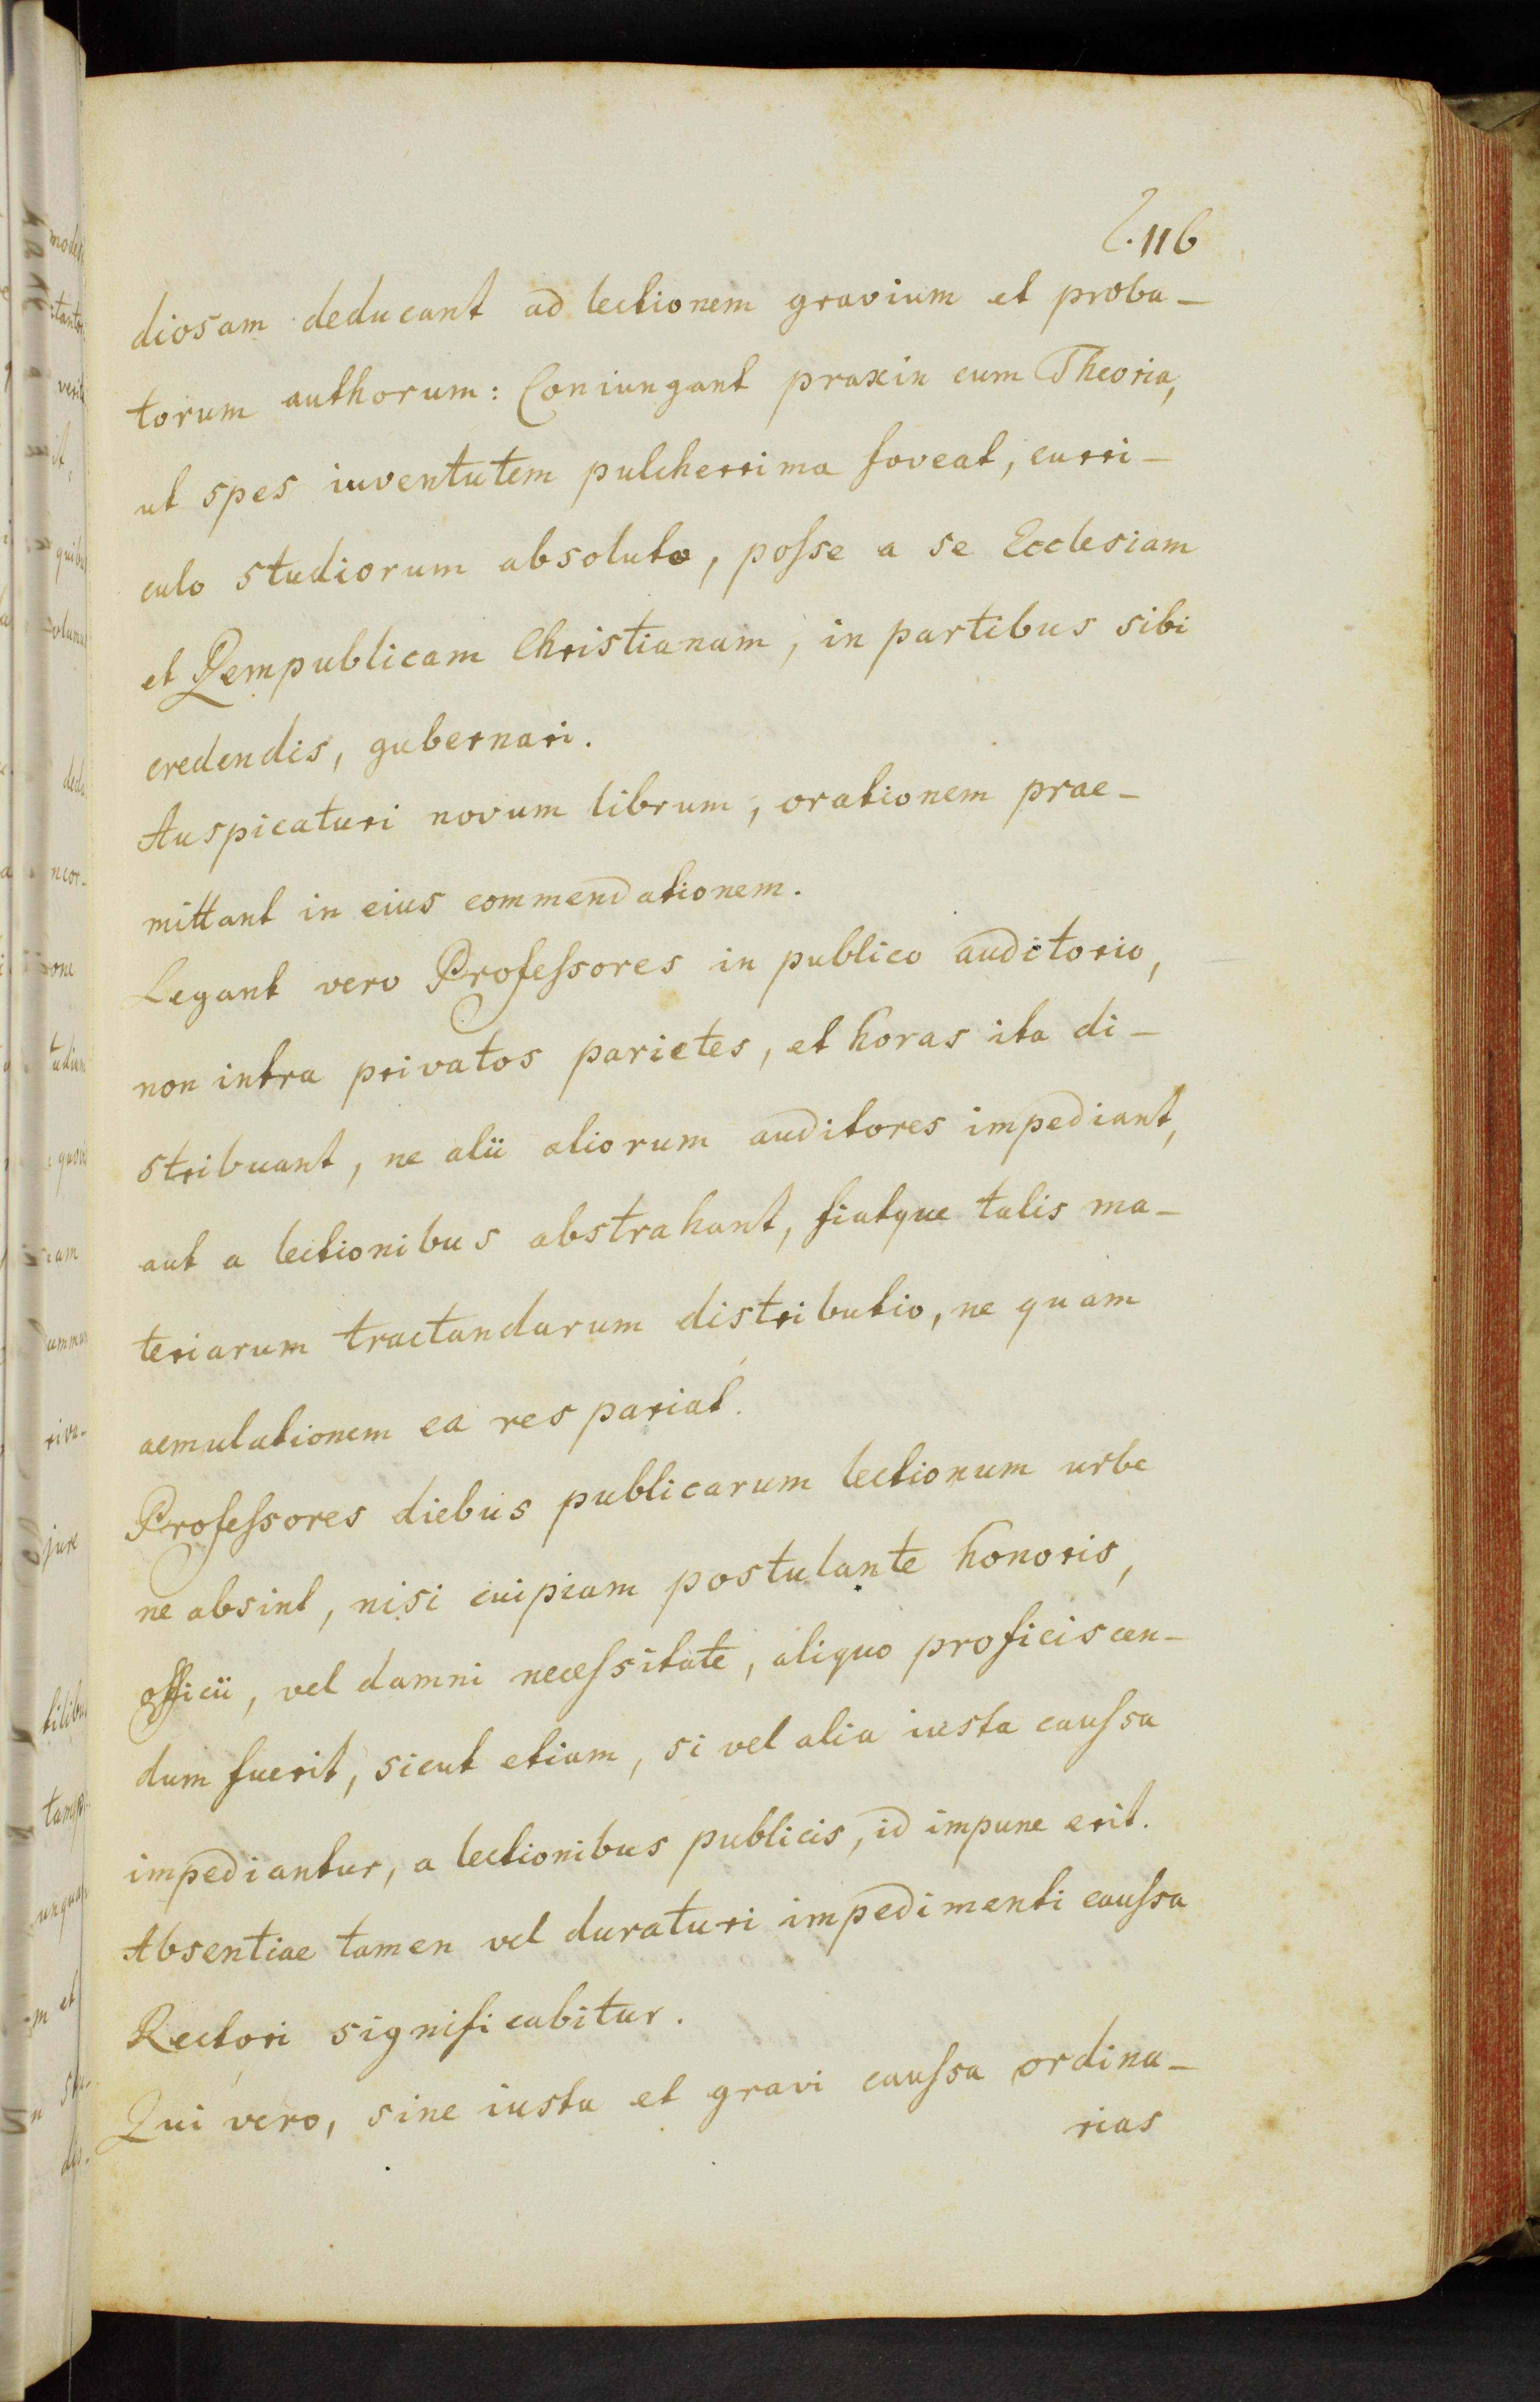 116
diosam deducant ad lectionem gravium et proba-
torum authorum: Coniungant praxin cum Theoria,
ut spes iuventutem pulcherrima foveat, curri-
culo studiorum absoluto, poſse a se Ecclesiam
et Rempublicam Christianam, in partibus sibi
credendis, gubernari.
Auspicaturi novum librum, orationem prae-
mittant in eius commendationem.
Legant vero Profeſsores in publico auditorio,
non intra privatos parietes, et horas ita di-
stribuant, ne alii aliorum auditores impediant,
aut a lectionibus abstrahant, fiatque talis ma-
teriarum tractandarum distributio, ne quam
aemulationem ea res pariat.
Profeſsores diebus publicarum lectionum urbe
ne absint, nisi cuipiam postulante honoris,
officii, vel damni neceſsitate, aliquo proficiscen-
dum fuerit, sicut etiam, si vel alia iusta cauſsa
impediantur, a lectionibus publicis, id impune erit.
Absentiae tamen vel duraturi impedimenti cauſsa
Rectori significabitur.
Qui vero, sine iusta et gravi cauſsa ordina-
rias